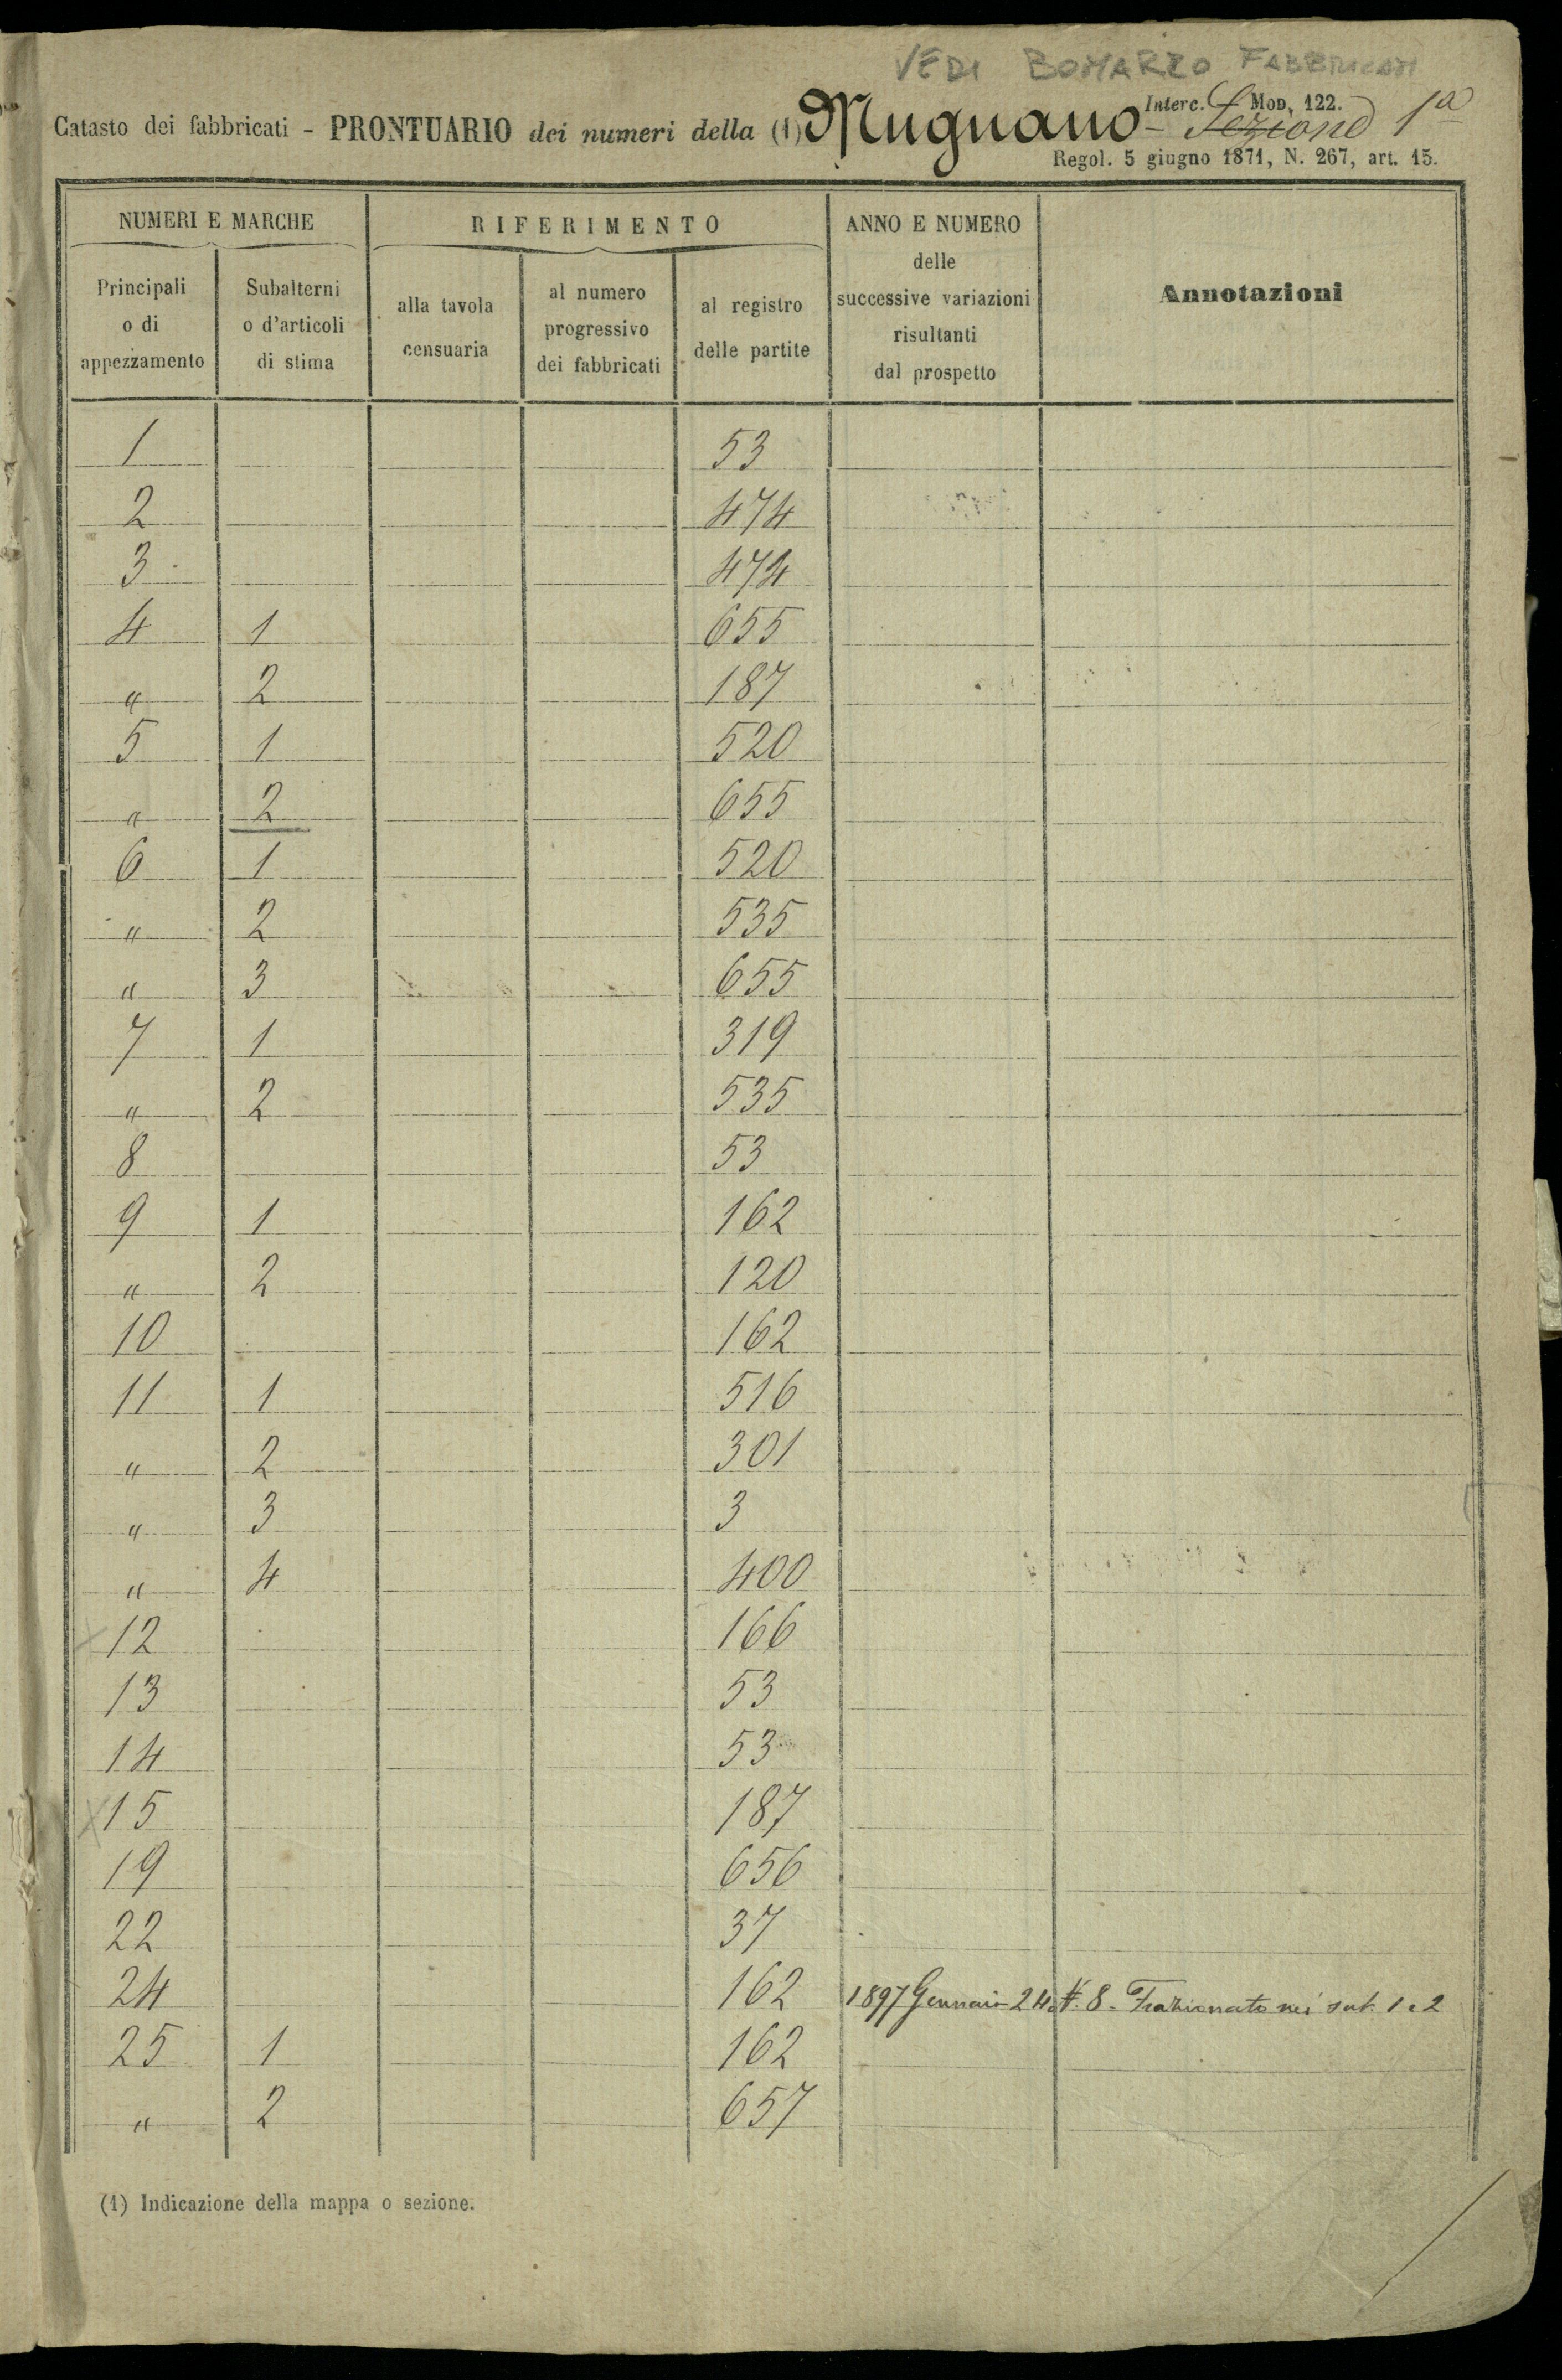 VEDI BOMARZO FABBRICATI
Interc. Mod. 122.
Catasto dei fabbricati - PRONTUARIO dei numeri della (1) Mugnano - Sezione 1ª
Regol. 5 giugno 1871, N. 267, art. 15.
NUMERI E MARCHE RIFERIMENTO ANNO E NUMERO delle successive variazioni risultanti dal prospetto Annotazioni
Principali o di appezzamento Subalterni o d'articoli di stima alla tavola censuaria al numero progressivo dei fabbricati al registro delle partite
1 53
2 474
3 474
4 1 655
" 2 187
5 1 520
" 2 655
6 1 520
" 2 535
" 3 655
7 1 319
" 2 535
8 53
9 1 162
" 2 120
10 162
11 1 516
" 2 301
" 3 3
" 4 400
12 166
13 53
14 53
15 187
19 656
22 37
24 162 1897 Gennaio 24. N. 8. Frazionato nei sub. 1 e 2
25 1 162
" 2 657
(1) Indicazione della mappa o sezione.